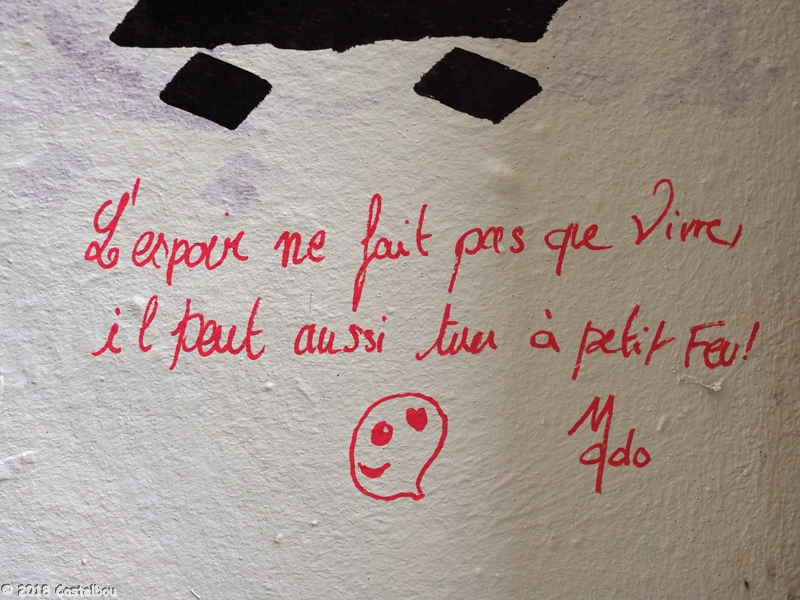 L'espoir ne fait pas que Vivre,
il peut aussi tuer à petit Feu!
© 2018 Costalbou